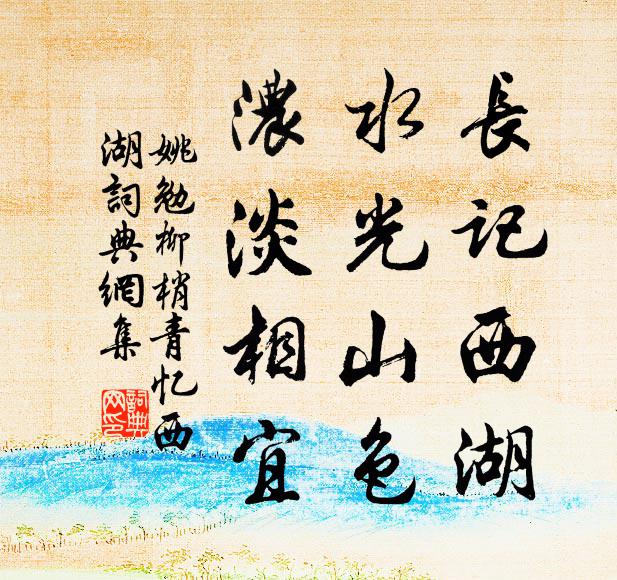 長记西湖
水光山色
濃淡相宜
姚勉柳梢青忆西
湖詞典網集
詞典
网印